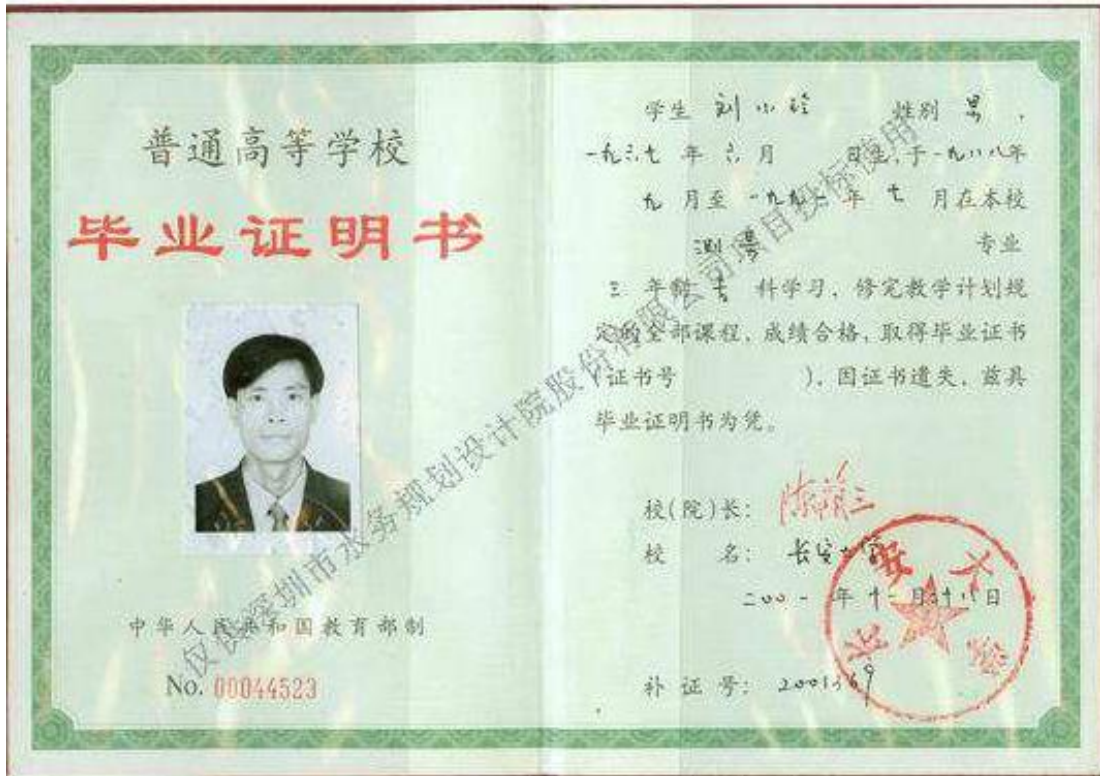 普通高等学校
毕业证明书
中华人民共和国教育部制
No. 00044523
学生 刘小 性别 男 ,
一九六七 年 六 月 日生, 于一九八八年
九 月至 一九九 年 七 月在本校
测 专业
三 年制 专 科学习, 修完教学计划规
定的全部课程, 成绩合格, 取得毕业证书
(证书号 ), 因证书遗失, 兹具
毕业证明书为凭。
校(院)长: 陈荫三
校 名: 长安大学
二〇〇一 年 十一 月 十八 日
补 证 号: 2001369
长安大学
仅供深圳市水务规划设计院股份有限公司项目投标使用